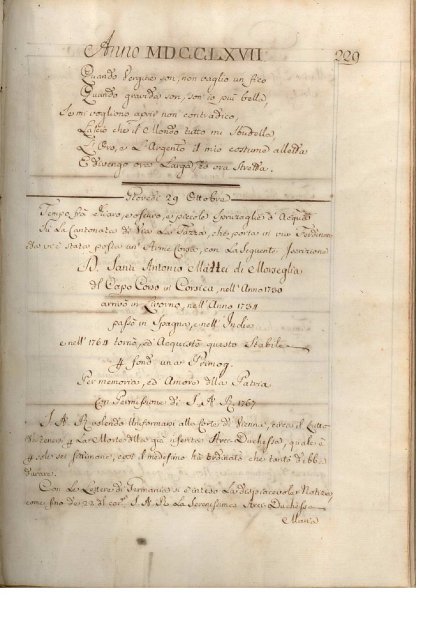 Anno MDCCLXVII 229
Quando Vergine son, non vaglio un fico
Quando gravida son, son' io più bella,
Se mi vogliono aprir non' contradico,
Lascio che il Mondo tutto mi sbudella
L'Oro, e L'Argento il mio costume alletta
E divengo ora Larga, ed ora stretta.
Giovedì 29 Ottobre
Tempo frà Chiaro, e oscuro, e piccole spruzzaglie d'Acqua
Su La Cantonata di Via La che porta in via Ferdinan-
da vi è stata posta un' Arme con La seguente Iscrizione
D. Santi Antonio Mattei di Morseglia
del Capo Corso in Corsica, nell' Anno 1730
arrivò in Livorno, nell' Anno 1734
passò in Spagna, e nell' Indie
e nell' 1764 tornò, ed Acquistò questo Stabile
fond. un
Per memoria, ed Amore della Patria
Con Permissione di S. A. R. 1767
S. A. R. volendo Uniformarsi alla Corte di Vienna, circa il Lutto
da tenersi La Morte della già riferita Arci-Duchessa, quale è
sole sei settimane, così il medesimo hà ordinato che tanto debba
durare.
Con Le Lettere di Germania si è inteso La dispiacevolar Notizia,
come fino de 23 del cor. S. A. R. La Serenissima Arci-Duchessa
Maria